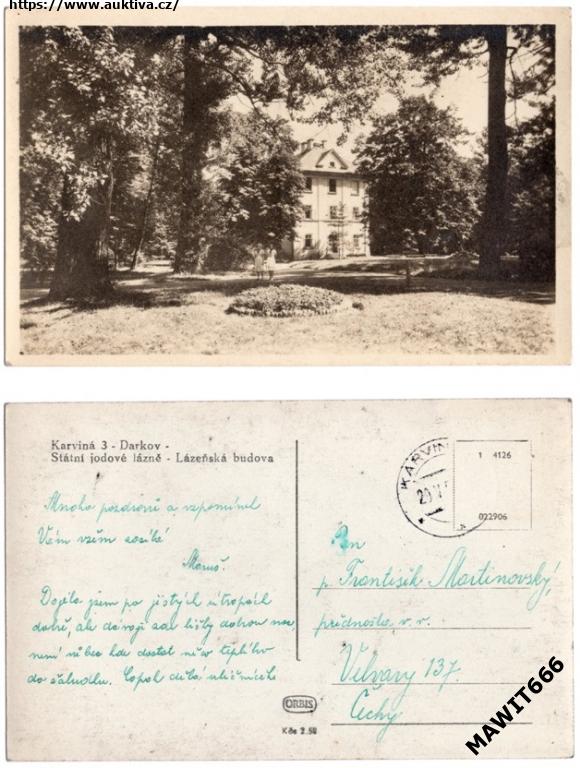 https://www.auktiva.cz/
Karviná 3 - Darkov -
Státní jodové lázně - Lázeňská budova
KARVIN
20.V
1 4126
022906
Mnoho pozdravů a vzpomínek
Vám všem
Dojela jsem po jistých útrapách
dobře, ale
není vůbec kde dostat něco teplého
do žaludku. Copak dělá
p. František Martinovský,
přednosta v. v.
Velvary 137.
Čechy
ORBIS
Kčs 2.50
MAWIT666